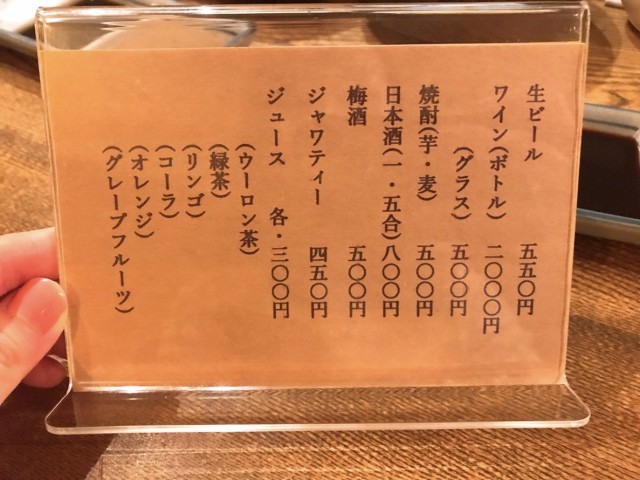 生ビール 五五〇円
ワイン(ボトル) 二〇〇〇円
(グラス) 五〇〇円
焼酎(芋・麦) 五〇〇円
日本酒(一・五合) 八〇〇円
梅酒 五〇〇円
ジャワティー 四五〇円
ジュース 各・三〇〇円
(ウーロン茶)
(緑茶)
(リンゴ)
(コーラ)
(オレンジ)
(グレープフルーツ)